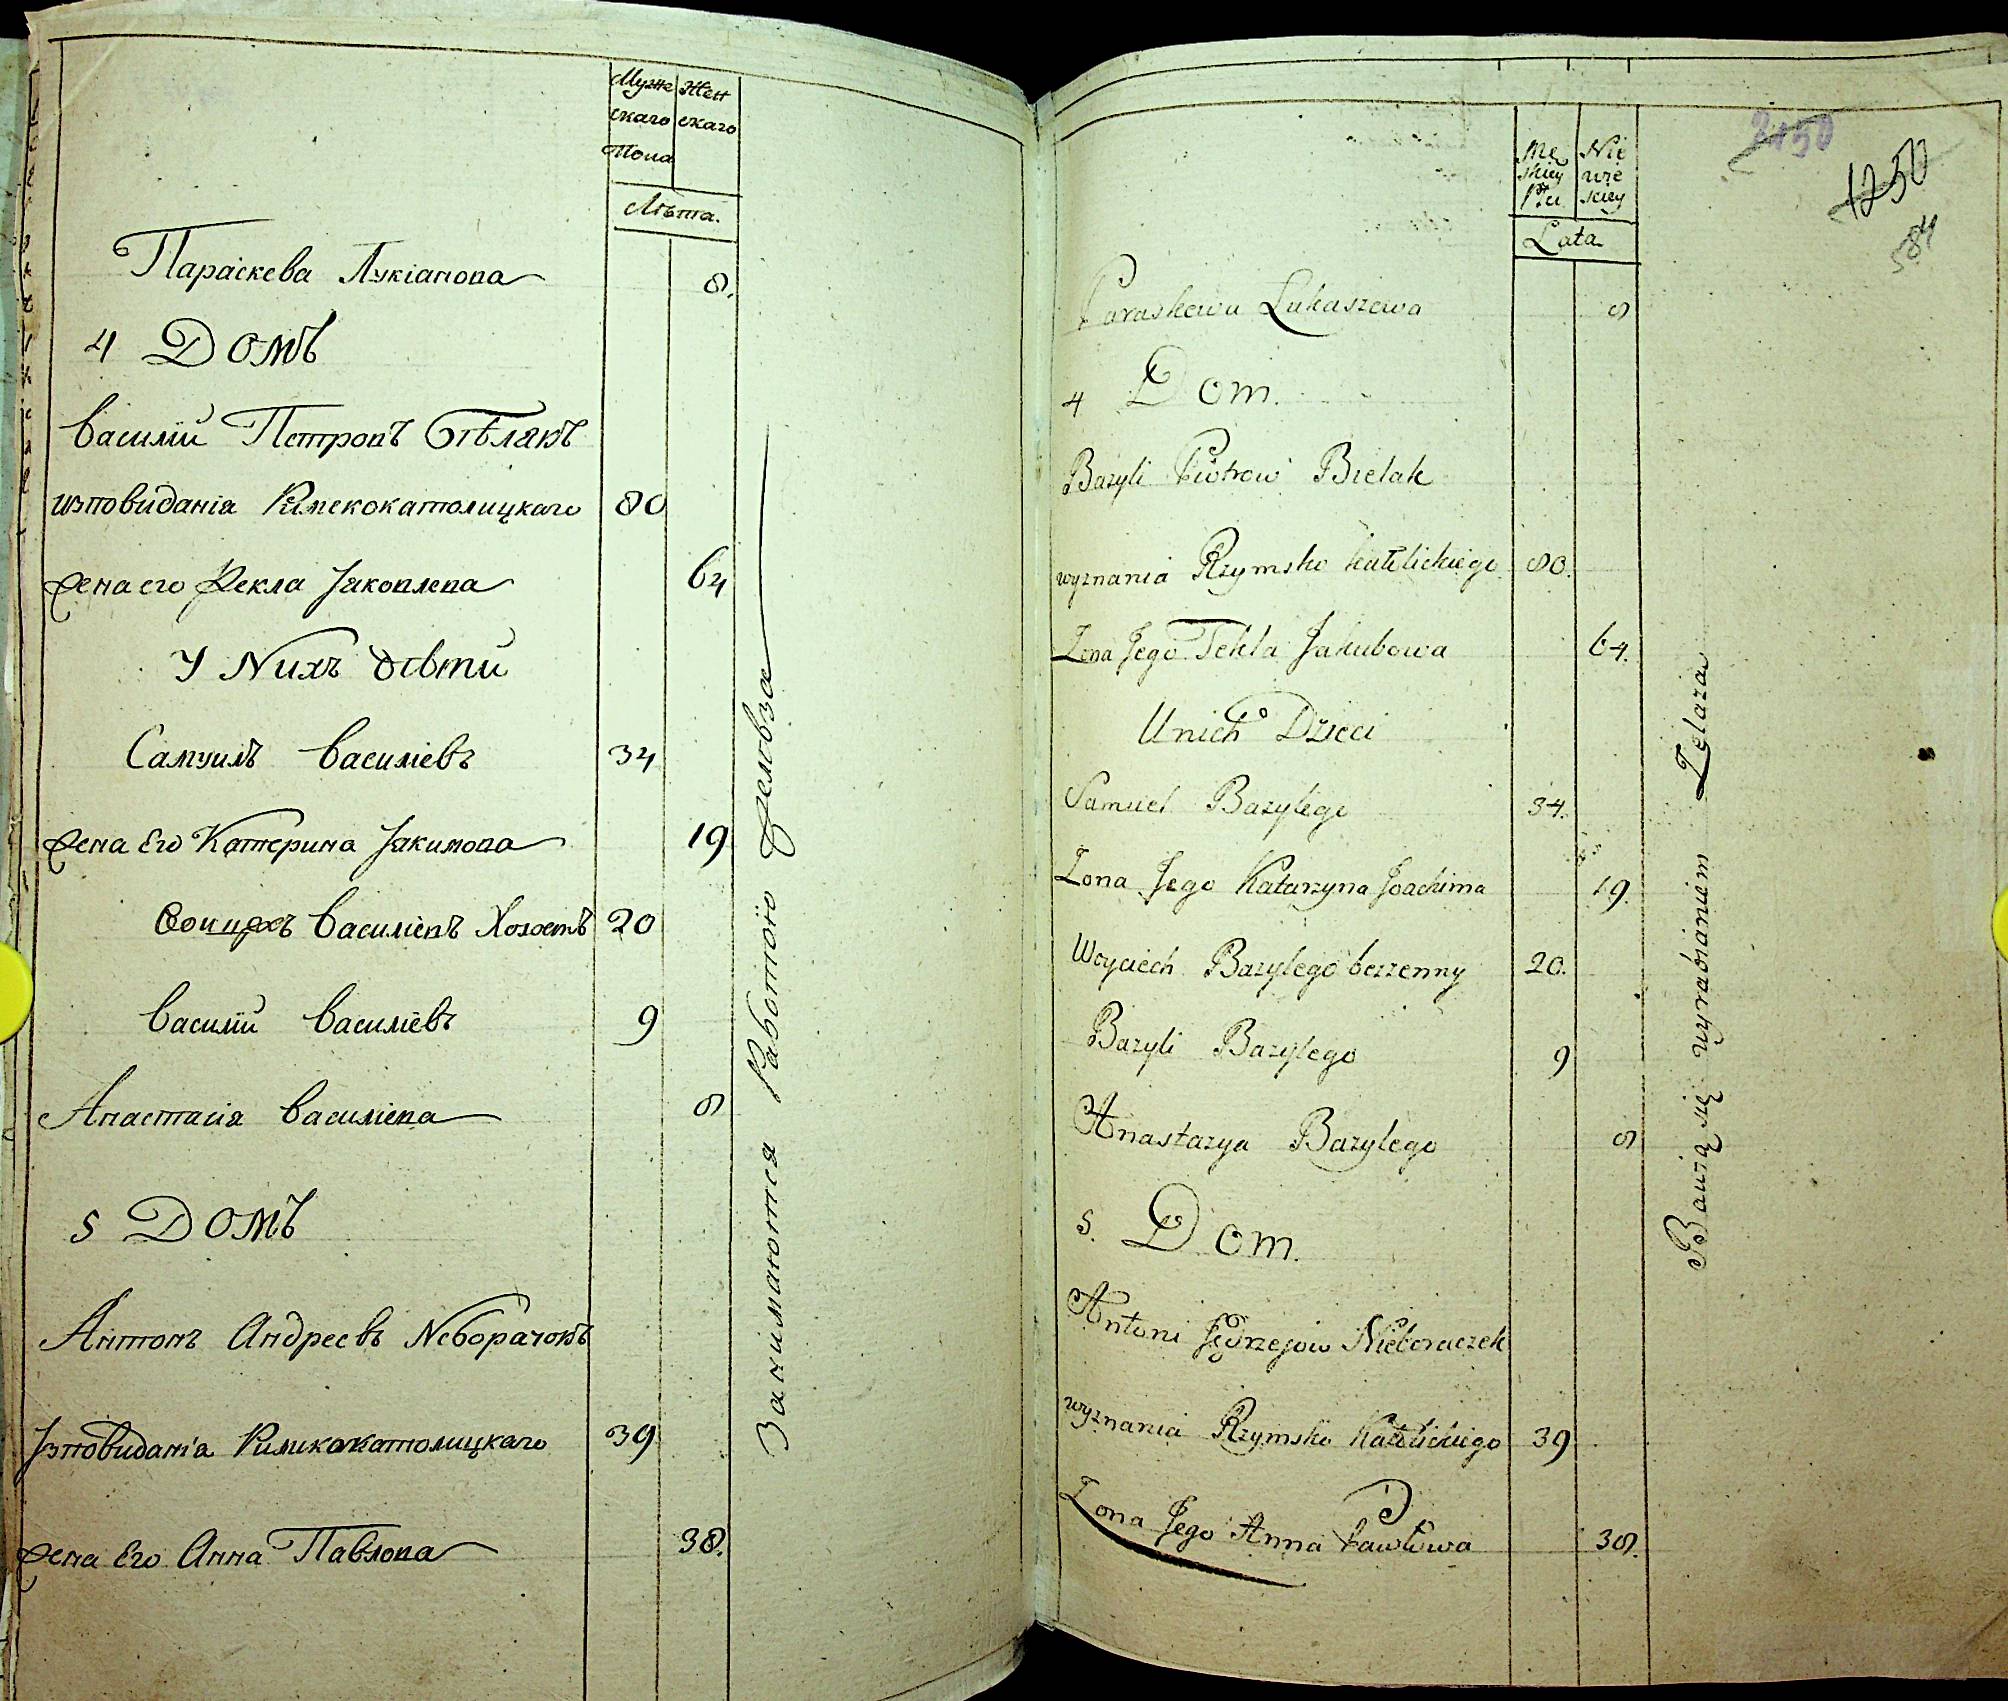 Муже Жен
скаго скаго
Пола
Лѣта.
Параскева Лукіанова 8.
4 Домъ
Василій Петровъ Бѣлякъ
изповиданія Римскокатолицкаго 80
жена его Фекла Јаковлева 64
У Nихъ дѣти
Самуилъ Василіевъ 34
жена Его Катерина Јакимова 19
Войцехъ Василіевъ Холостъ 20
Василій Василіевъ 9
Анастасія Василіева 8
5 Домъ
Антонъ Андреевъ Nеборачокъ
Јзповиданія Римикокатолицкаго 39
жена Его Анна Павлова 38.
Занимаются Работою Железа
Mę Nie
skiey wie
Płci sciey
Lata
Paraskewa Lukaszewa 8
4 Dom.
Bazyli Piotrow Bielak
wyznania Rzymsko Katolickiego 80.
Zona Jego Tekla Jakubowa 64.
Unich Dzieci
Samuel Bazylego 34.
Zona Jego Katarzyna Joachima 19.
Woyciech Bazylego bezzenny 20.
Bazyli Bazylego 9
Anastazya Bazylego 8
5. Dom.
Antoni Jędrzejow Nieboraczek
wyznania Rzymsko Katolickiego 39
Zona Jego Anna Pawłowa 38.
Bawią się wyrabianiem Zelaza
2450
1250
584